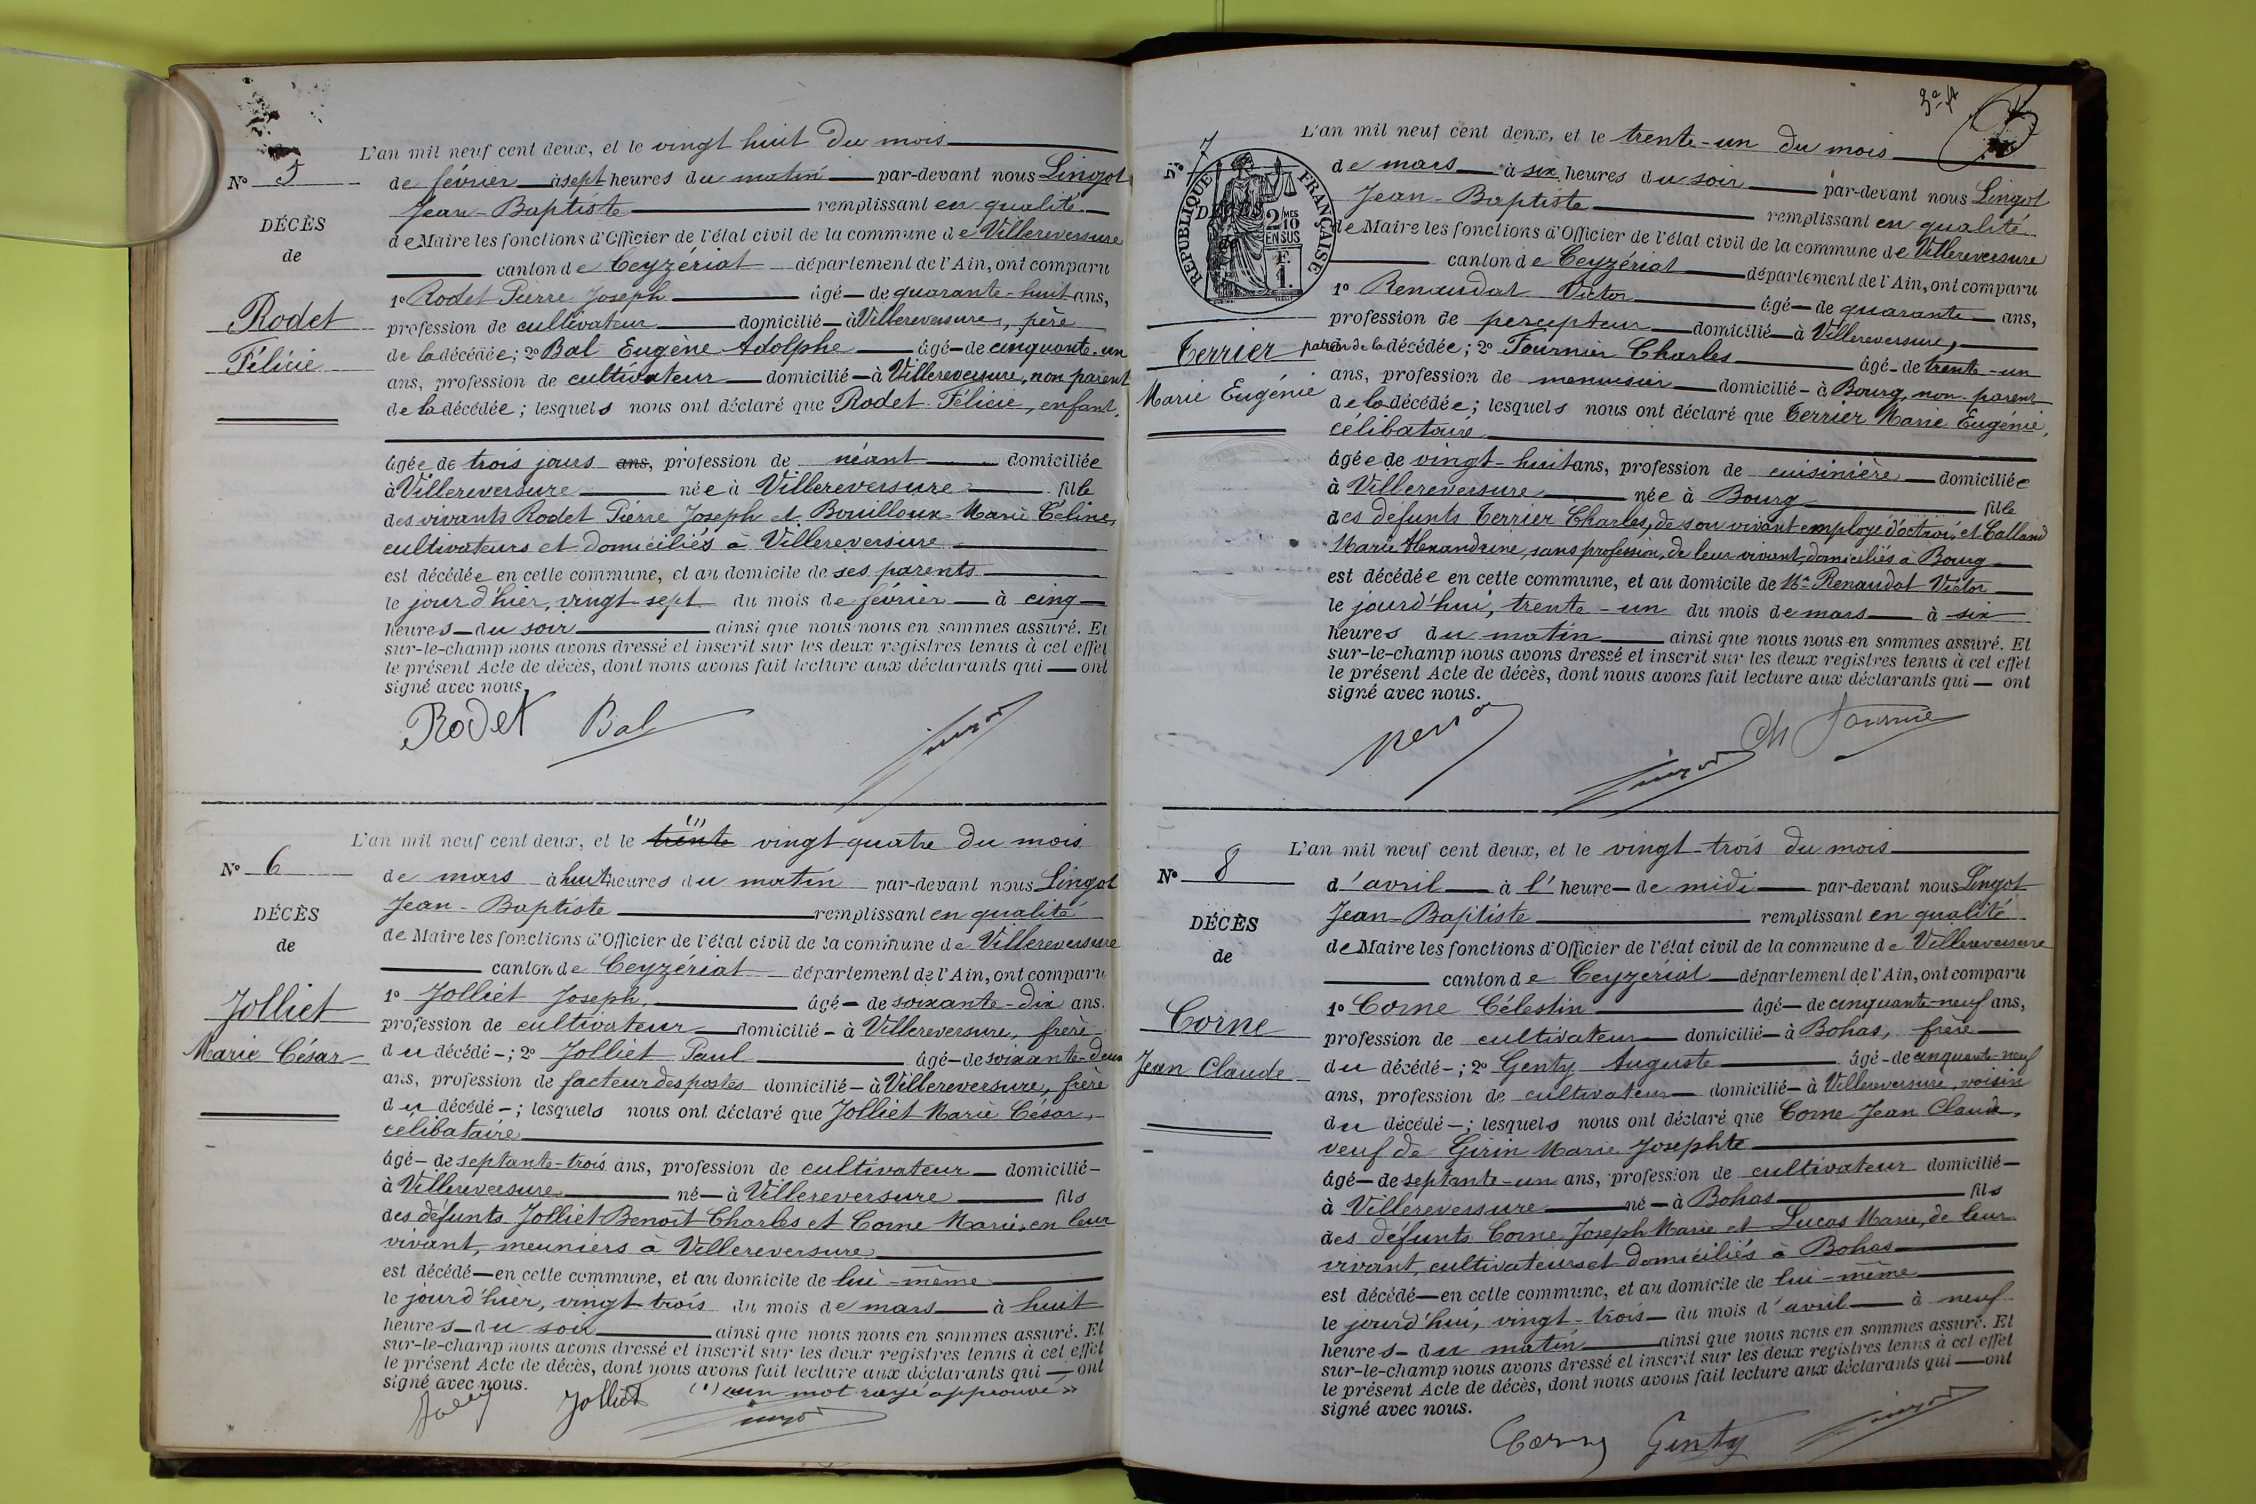 L'an mil neuf cent deux, et le vingt huit du mois
Nº 5
de février à sept heures du matin par-devant nous Lingot
Jean-Baptiste remplissant en qualité
DÉCÈS
de Maire les fonctions d'Officier de l'état civil de la commune de Villereversure
de
canton de Ceyzériat département de l'Ain, ont comparu
1º Rodet Pierre Joseph âgé de quarante-huit ans,
Rodet
profession de cultivateur domicilié à Villereversure, père
Félicie
de la décédée; 2º Bal Eugène Adolphe âgé de cinquante-un
ans, profession de cultivateur domicilié à Villereversure, non parent
de la décédée; lesquels nous ont déclaré que Rodet Félicie, enfant,
âgée de trois jours ans, profession de néant domiciliée
à Villereversure née à Villereversure fille
des vivants Rodet Pierre Joseph et Bouilloux Marie Céline,
cultivateurs et domiciliés à Villereversure
est décédée en cette commune, et au domicile de ses parents
le jour d'hier, vingt-sept du mois de février à cinq
heures du soir ainsi que nous nous en sommes assuré. Et
sur-le-champ nous avons dressé et inscrit sur les deux registres tenus à cet effet
le présent Acte de décès, dont nous avons fait lecture aux déclarants qui ont
signé avec nous.
Rodet Bal Lingot
L'an mil neuf cent deux, et le trente (1) vingt quatre du mois
Nº 6
de mars à huit heures du matin par-devant nous Lingot
Jean-Baptiste remplissant en qualité
DÉCÈS
de Maire les fonctions d'Officier de l'état civil de la commune de Villereversure
de
canton de Ceyzériat département de l'Ain, ont comparu
1º Jolliet Joseph, âgé de soixante-dix ans.
Jolliet
profession de cultivateur domicilié à Villereversure, frère
Marie César
du décédé; 2º Jolliet Paul âgé de soixante-deux
ans, profession de facteur des postes domicilié à Villereversure, frère
du décédé; lesquels nous ont déclaré que Jolliet Marie César,
célibataire
âgé de septante-trois ans, profession de cultivateur domicilié
à Villereversure né à Villereversure fils
des défunts Jolliet Benoît Charles et Corne Marie, en leur
vivant, meuniers à Villereversure
est décédé en cette commune, et au domicile de lui-même
le jour d'hier, vingt-trois du mois de mars à huit
heures du soir ainsi que nous nous en sommes assuré. Et
sur-le-champ nous avons dressé et inscrit sur les deux registres tenus à cet effet
le présent Acte de décès, dont nous avons fait lecture aux déclarants qui ont
signé avec nous. (1) « un mot rayé approuvé »
Jolliet Lingot
L'an mil neuf cent deux, et le trente-un du mois
Nº 7
de mars à six heures du soir par-devant nous Lingot
RÉPUBLIQUE FRANÇAISE
2/10 EN SUS
F. 1.
Jean-Baptiste remplissant en qualité
de Maire les fonctions d'Officier de l'état civil de la commune de Villereversure
canton de Ceyzériat département de l'Ain, ont comparu
1º Renaudat Victor âgé de quarante ans,
profession de percepteur domicilié à Villereversure,
Terrier
patron de la décédée; 2º Fournier Charles âgé de trente-un
Marie Eugénie
ans, profession de menuisier domicilié à Bourg, non parent
de la décédée; lesquels nous ont déclaré que Terrier Marie Eugénie,
célibataire
âgée de vingt-huit ans, profession de cuisinière domiciliée
à Villereversure née à Bourg fille
des défunts Terrier Charles, de son vivant employé d'octroi, et Calland
Marie Alexandrine, sans profession, de leur vivant, domiciliés à Bourg
est décédée en cette commune, et au domicile de Mr Renaudat Victor
le jourd'hui, trente-un du mois de mars à six
heures du matin ainsi que nous nous en sommes assuré. Et
sur-le-champ nous avons dressé et inscrit sur les deux registres tenus à cet effet
le présent Acte de décès, dont nous avons fait lecture aux déclarants qui ont
signé avec nous.
Lingot Ch Fournier
L'an mil neuf cent deux, et le vingt-trois du mois
Nº 8
d'avril à l'heure de midi par-devant nous Lingot
Jean-Baptiste remplissant en qualité
DÉCÈS
de Maire les fonctions d'Officier de l'état civil de la commune de Villereversure
de
canton de Ceyzeriat département de l'Ain, ont comparu
1º Corne Célestin âgé de cinquante-neuf ans,
Corne
profession de cultivateur domicilié à Bohas, frère
Jean Claude
du décédé; 2º Genty Auguste âgé de cinquante-neuf
ans, profession de cultivateur domicilié à Villereversure, voisin
du décédé; lesquels nous ont déclaré que Corne Jean Claude,
veuf de Girin Marie Josephte
âgé de septante-un ans, profession de cultivateur domicilié
à Villereversure né à Bohas fils
des défunts Corne Joseph Marie et Lucas Marie, de leur
vivant, cultivateurs et domiciliés à Bohas
est décédé en cette commune, et au domicile de lui-même
le jourd'hui, vingt-trois du mois d'avril à neuf
heures du matin ainsi que nous nous en sommes assuré. Et
sur-le-champ nous avons dressé et inscrit sur les deux registres tenus à cet effet
le présent Acte de décès, dont nous avons fait lecture aux déclarants qui ont
signé avec nous.
Corne Genty Lingot